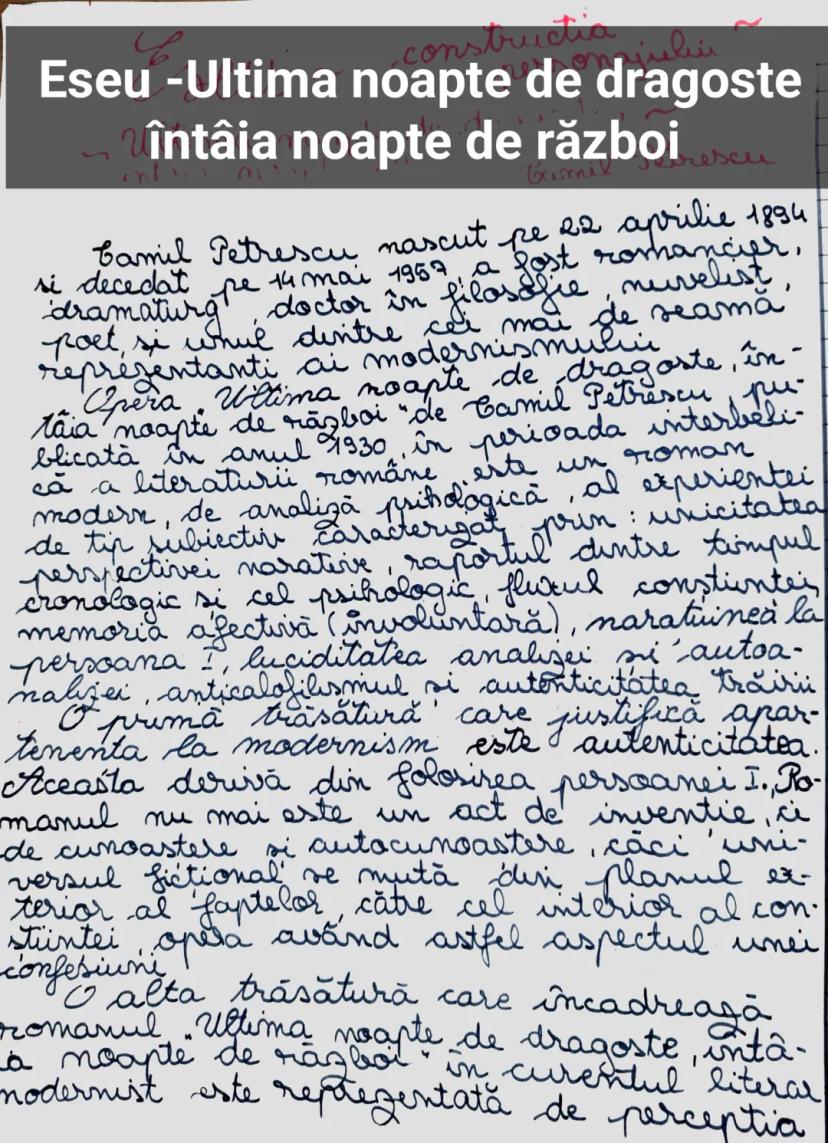 Eseu -Ultima noapte de dragoste
întâia noapte de război
constructia
personajului
Camil Petrescu
Camil Petrescu nascut pe 22 aprilie 1894
si decedat pe 14 mai 1957, a fost romancier,
dramaturg, doctor în filosofie, nuvelist,
poet, si unul dintre cei mai de seamă
reprezentanti ai modernismului
Opera "Ultima noapte de dragoste, în-
tâia noapte de război" de Camil Petrescu, pu-
blicată în anul 1930, în perioada interbeli-
că a literaturii române, este un roman
modern, de analiză psihologică, al experientei
de tip subiectiv caracterizat prin: unicitatea
perspectivei narative, raportul dintre timpul
cronologic si cel psihologic, fluxul constiintei,
memoria afectivă (involuntară), naratiunea la
persoana I, luciditatea analizei si autoa-
nalizei, anticalofilismul si autenticitatea trăirii
O primă trăsătură care justifică apar-
tenenta la modernism este autenticitatea.
Aceasta derivă din folosirea persoanei I., Ro-
manul nu mai este un act de inventie, ci
de cunoastere si autocunoastere, căci uni-
versul fictional se mută din planul ex-
terior al faptelor, către cel interior al con-
stiintei, opera având astfel aspectul unei
confesiuni
O alta trăsătură care încadrează
romanul "Ultima noapte de dragoste, întâ-
ia noapte de război" în curentul literar
modernist este reprezentată de perceptia